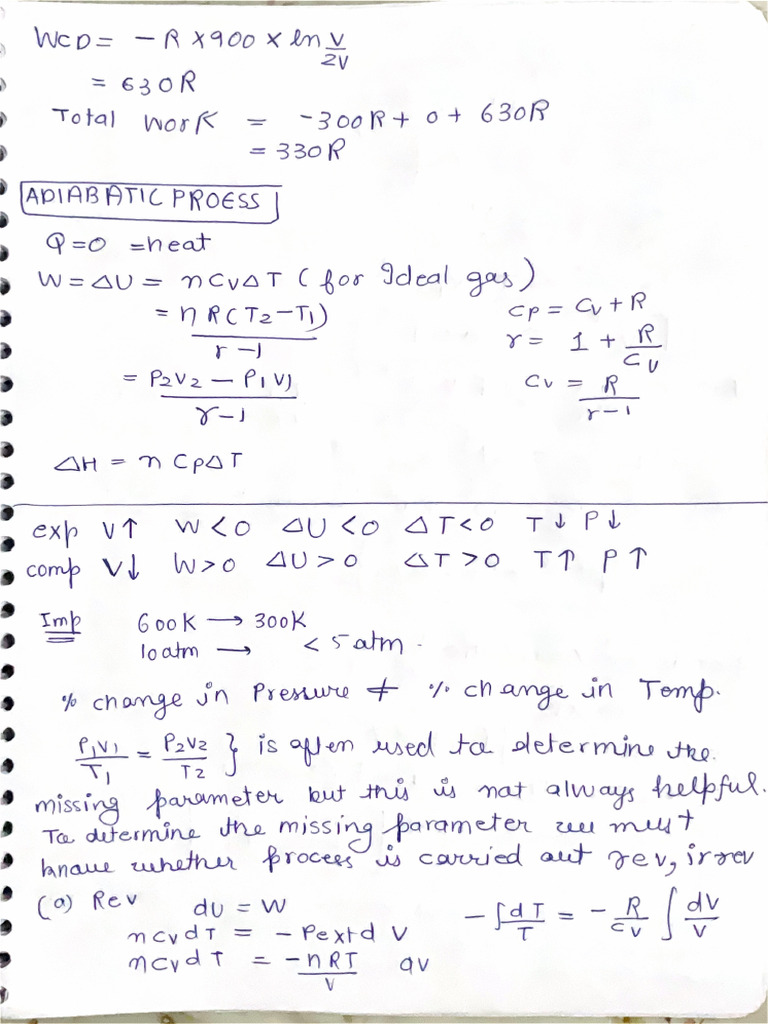 WCD = - R × 900 × ln V/2V
= 630R
Total work = -300R + 0 + 630R
= 330R
ADIABATIC PROESS
Q=0 =heat
W = ΔU = nCvΔT (for Ideal gas)
= nR(T2-T1)/r-1
Cp = Cv + R
r = 1 + R/Cv
= P2V2 - P1V1/r-1
Cv = R/r-1
ΔH = nCpΔT
exp V↑ W<0 ΔU<0 ΔT<0 T↓ P↓
comp V↓ W>0 ΔU>0 ΔT>0 T↑ P↑
Imp 600K → 300K
10atm → < 5atm.
% change in Pressure ≠ % change in Temp.
P1V1/T1 = P2V2/T2 } is often used to determine the.
missing parameter but this is not always helpful.
To determine the missing parameter we must
know whether process is carried out rev, irrev
(a) Rev dU = W
nCvdT = - Pext dV
nCvdT = -nRT/V dv
-∫dT/T = - R/Cv ∫ dV/V